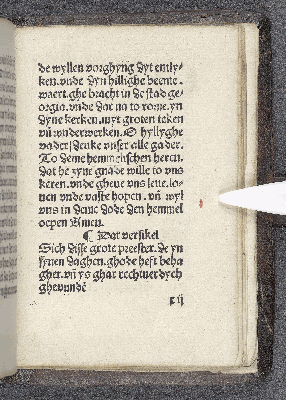 de wyllen vorghyng dyt ently-
ken. vnde dyn hillighe beente.
waert ghe bracht in de stad ge-
orgia. vnde dar na to rome. yn
dyne kerken. myt groten teken
vñ vnderwerken. O hyllyghe
vader/ denke vnser alle gader.
To deme hemmelschen heren.
dat he zyne gnade wille to vns
keren. vnde gheue vns leue. lo-
uen vnde vaste hopen. vñ wyl
vns in deme dode den hemmel
oepen Amen.
¶ Dat versikel
Sich disse grote preester. de yn
synen daghen. ghode heft beha
ghet. vñ ys ghar rechtuerdych
gheuunde